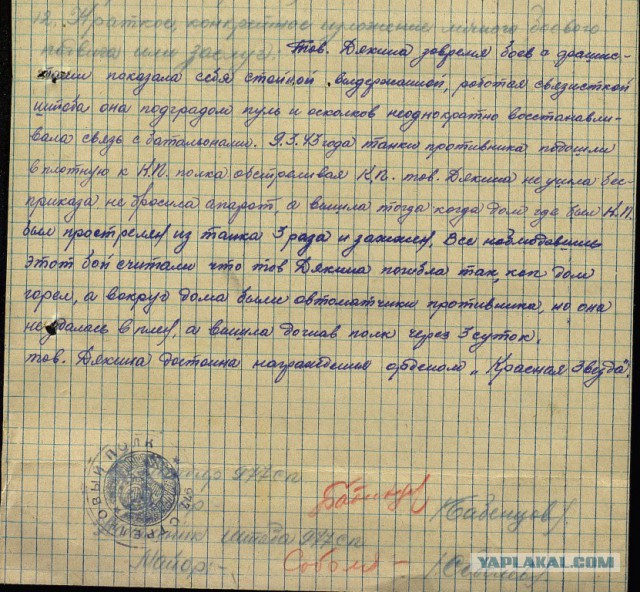 12. Краткое, конкретное изложение личного боевого
подвига или заслуг: Тов. Дякина вовремя боев с фашис-
тами показала себя стойкой выдержаной, работая связисткой
штаба она подградом пуль и осколков неоднократно восстанавли-
вала связь с батальонами. 9.3.43 года танки противника подошли
вплотную к К.П. полка обстреливая К.П. тов. Дякина не ушла бес-
приказа не бросила апарат, а вышла тогда когда дом где был К.П.
был прострелян из танка 3 раза и зажжен. Все наблюдавшие
этот бой считали что тов Дякина погибла так, как дом
горел, а вокруг дома были автоматчики противника, но она
не удалась в плен, а вышла догнав полк через 3 суток.
тов. Дякина достойна награждения орденом „Красная Звезда".
977 сп
Бабенцов
штаба 977 сп
Майор: - Соболь -
СТРЕЛКОВЫЙ ПОЛК
YAPLAKAL.COM